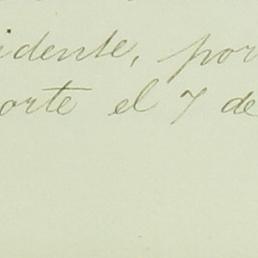 idente, por
orte el 7 de